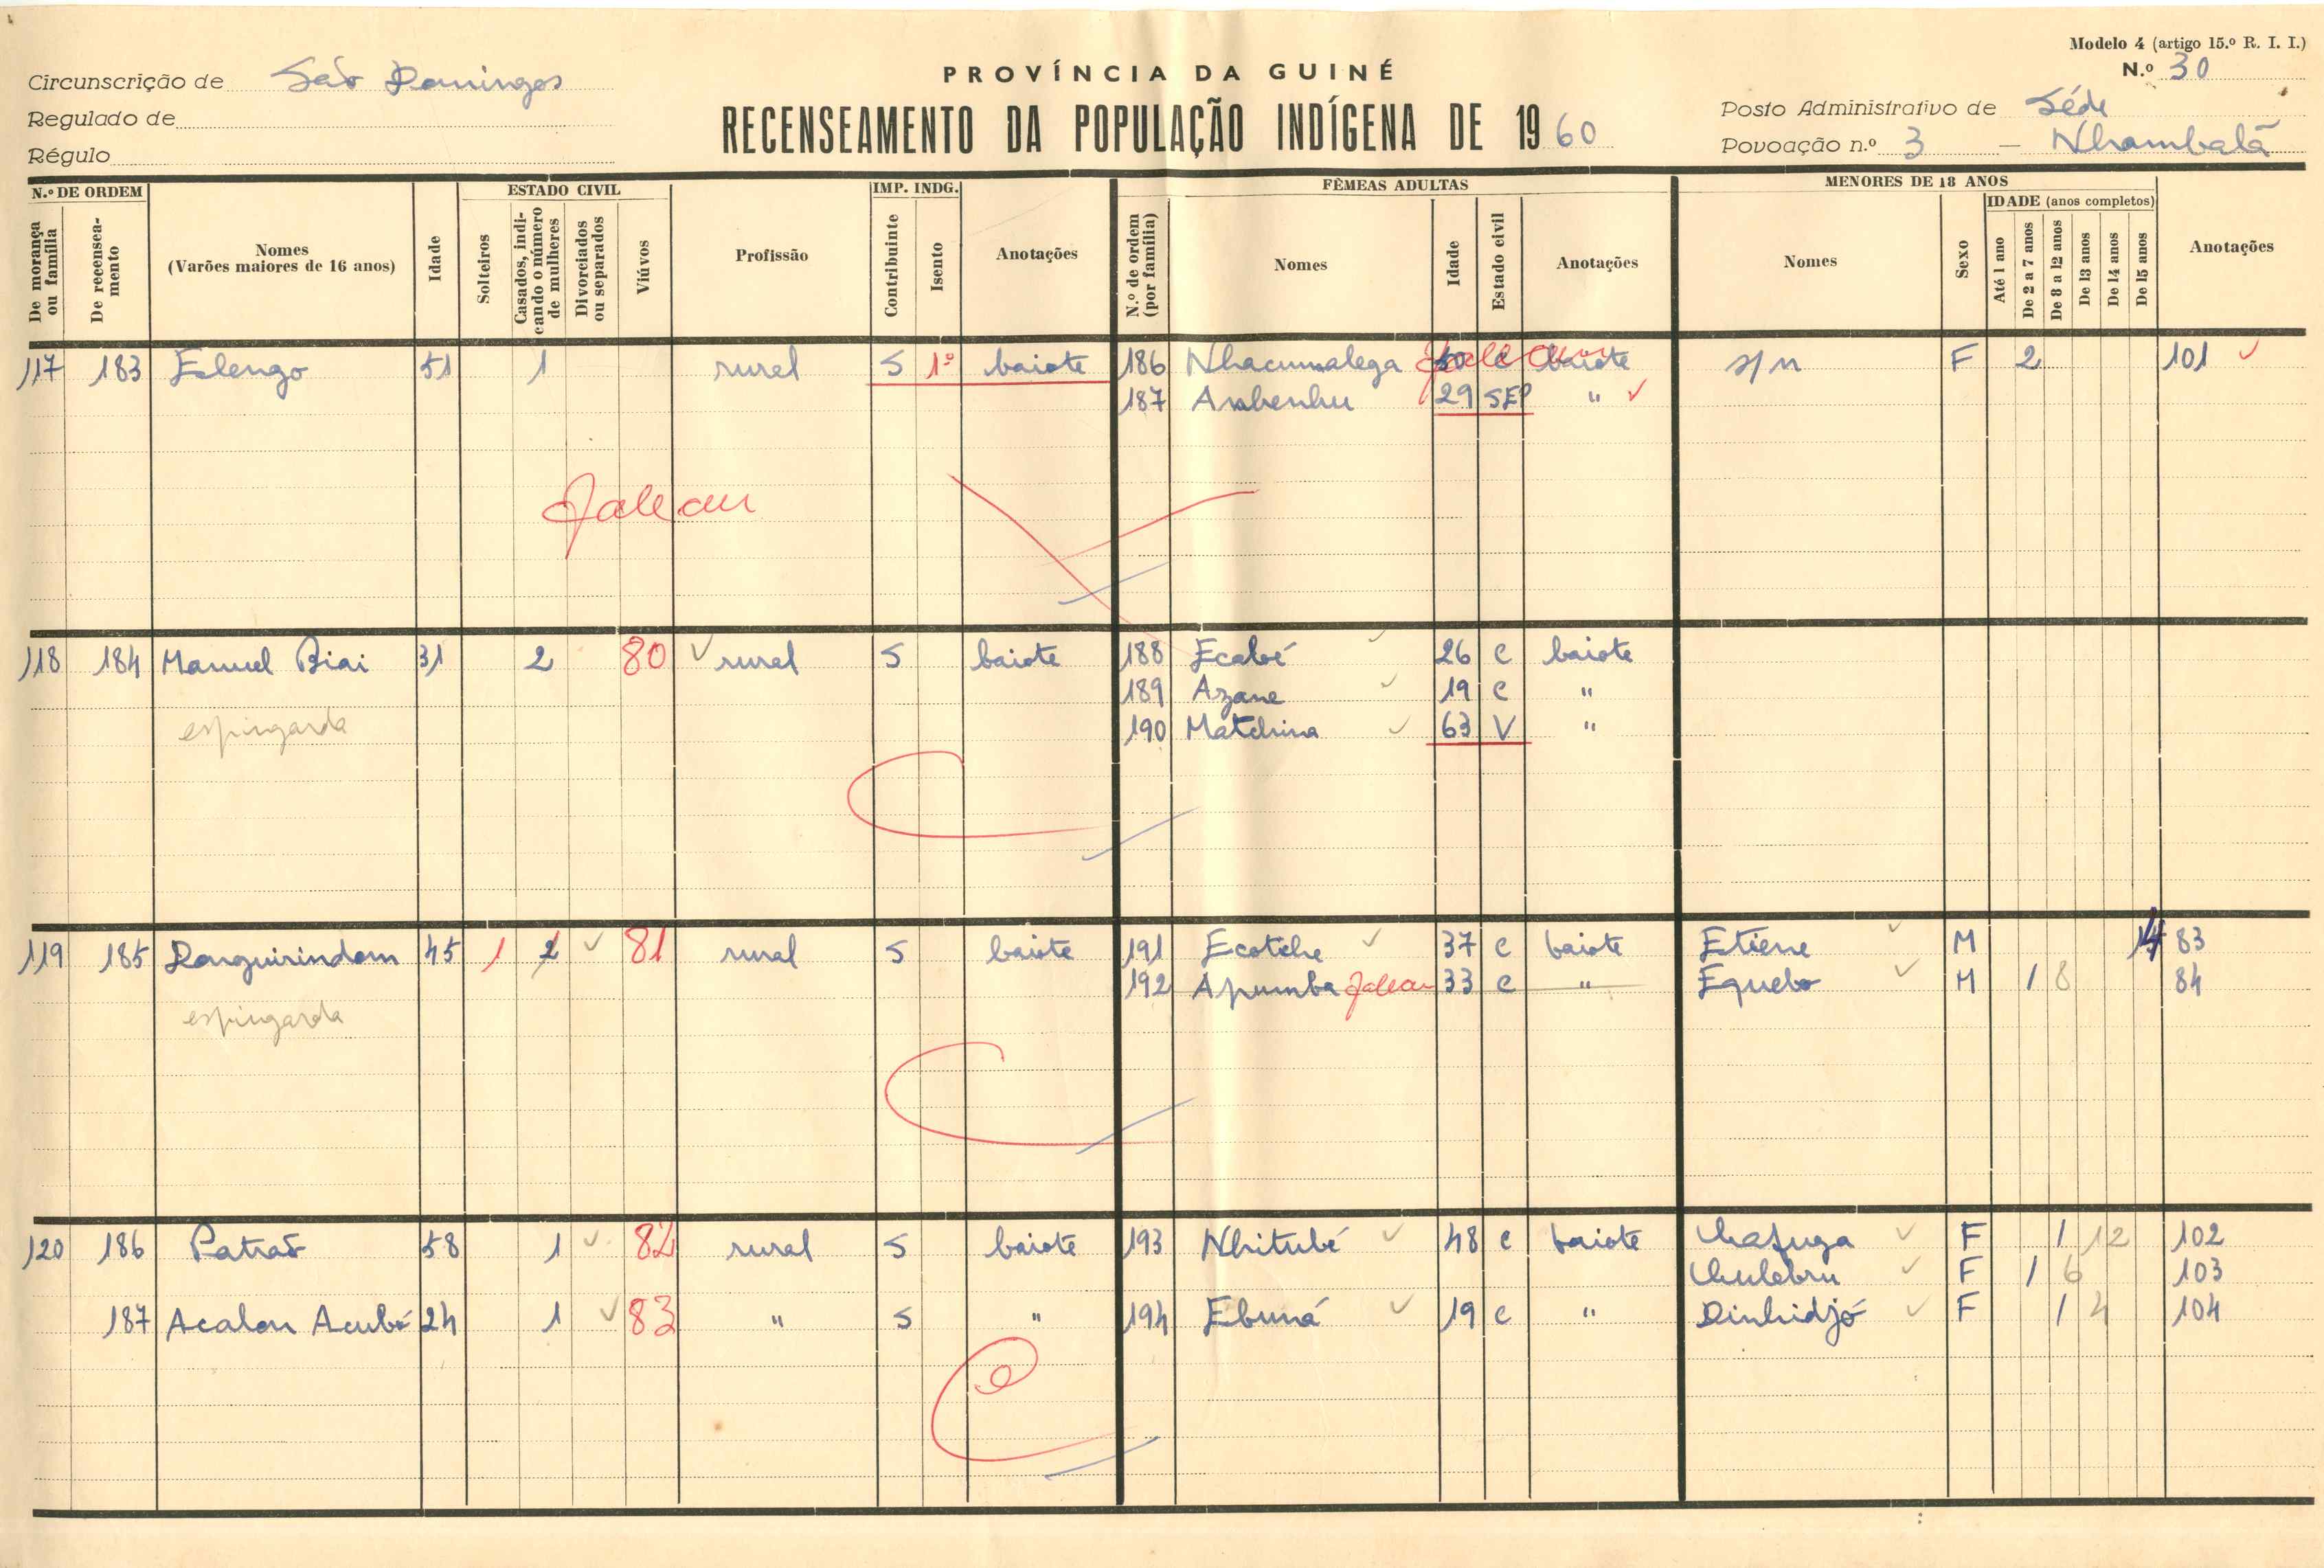 Modelo 4 (artigo 15.º R. I. I.)
PROVÍNCIA DA GUINÉ
N.º 30
Circunscrição de São Domingos
RECENSEAMENTO DA POPULAÇÃO INDÍGENA DE 1960
Posto Administrativo de Séde
Regulado de
Povoação n.º 3 — Nhambalã
Régulo
N.º DE ORDEM
ESTADO CIVIL
IMP. INDG.
FÊMEAS ADULTAS
MENORES DE 18 ANOS
De morança ou família
De recenseamento
Nomes (Varões maiores de 16 anos)
Idade
Solteiros
Casados, indicando o número de mulheres
Divorciados ou separados
Viúvos
Profissão
Contribuinte
Isento
Anotações
N.º de ordem (por família)
Nomes
Idade
Estado civil
Anotações
Nomes
Sexo
IDADE (anos completos)
Até 1 ano
De 2 a 7 anos
De 8 a 12 anos
De 13 anos
De 14 anos
De 15 anos
Anotações
117 183 Elengo 51 1 rural S 1º baiote 186 Nhacumalega c baiote s/n F 2 101
187 29 SEP "
118 184 Manuel Biai 31 2 80 rural S baiote 188 Ecabé 26 c baiote
189 Azane 19 c "
espingarda 190 Matchina 63 V "
119 185 45 1 2 81 rural S baiote 191 Ecotche 37 c baiote Etiene M 14 83
192 Apumba 33 c " Equebo M 1 8 84
espingarda
120 186 Patrão 58 1 82 rural S baiote 193 Nhitubé 48 c baiote Chafuga F 1 12 102
Chulebru F 1 6 103
187 Acalon Acubé 24 1 83 " S " 194 Ebuná 19 c " Dinhidjó F 1 4 104